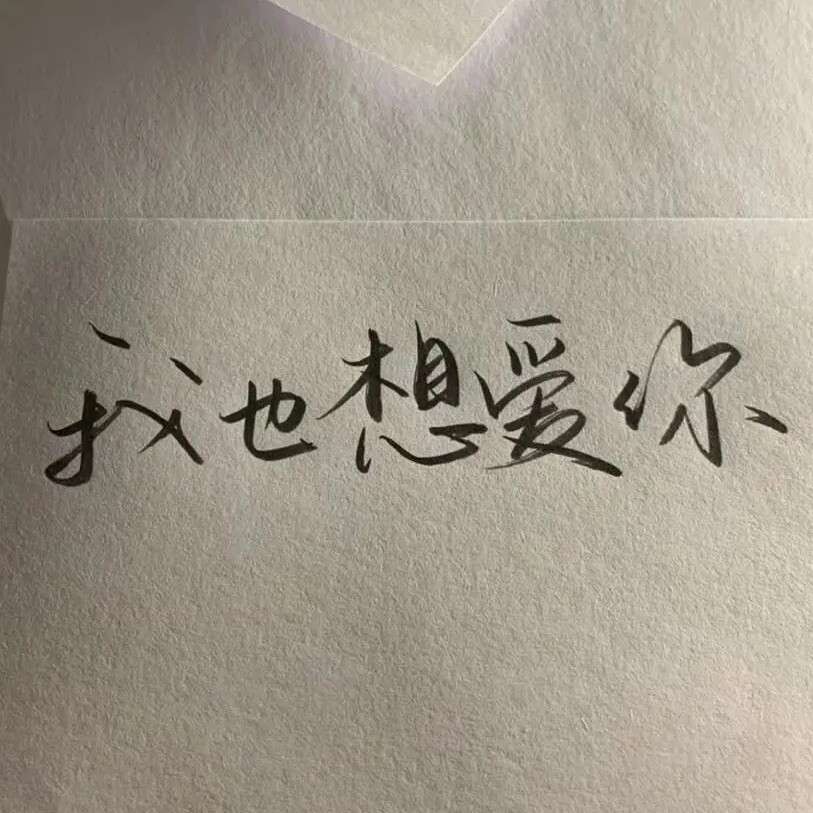 我也想爱你